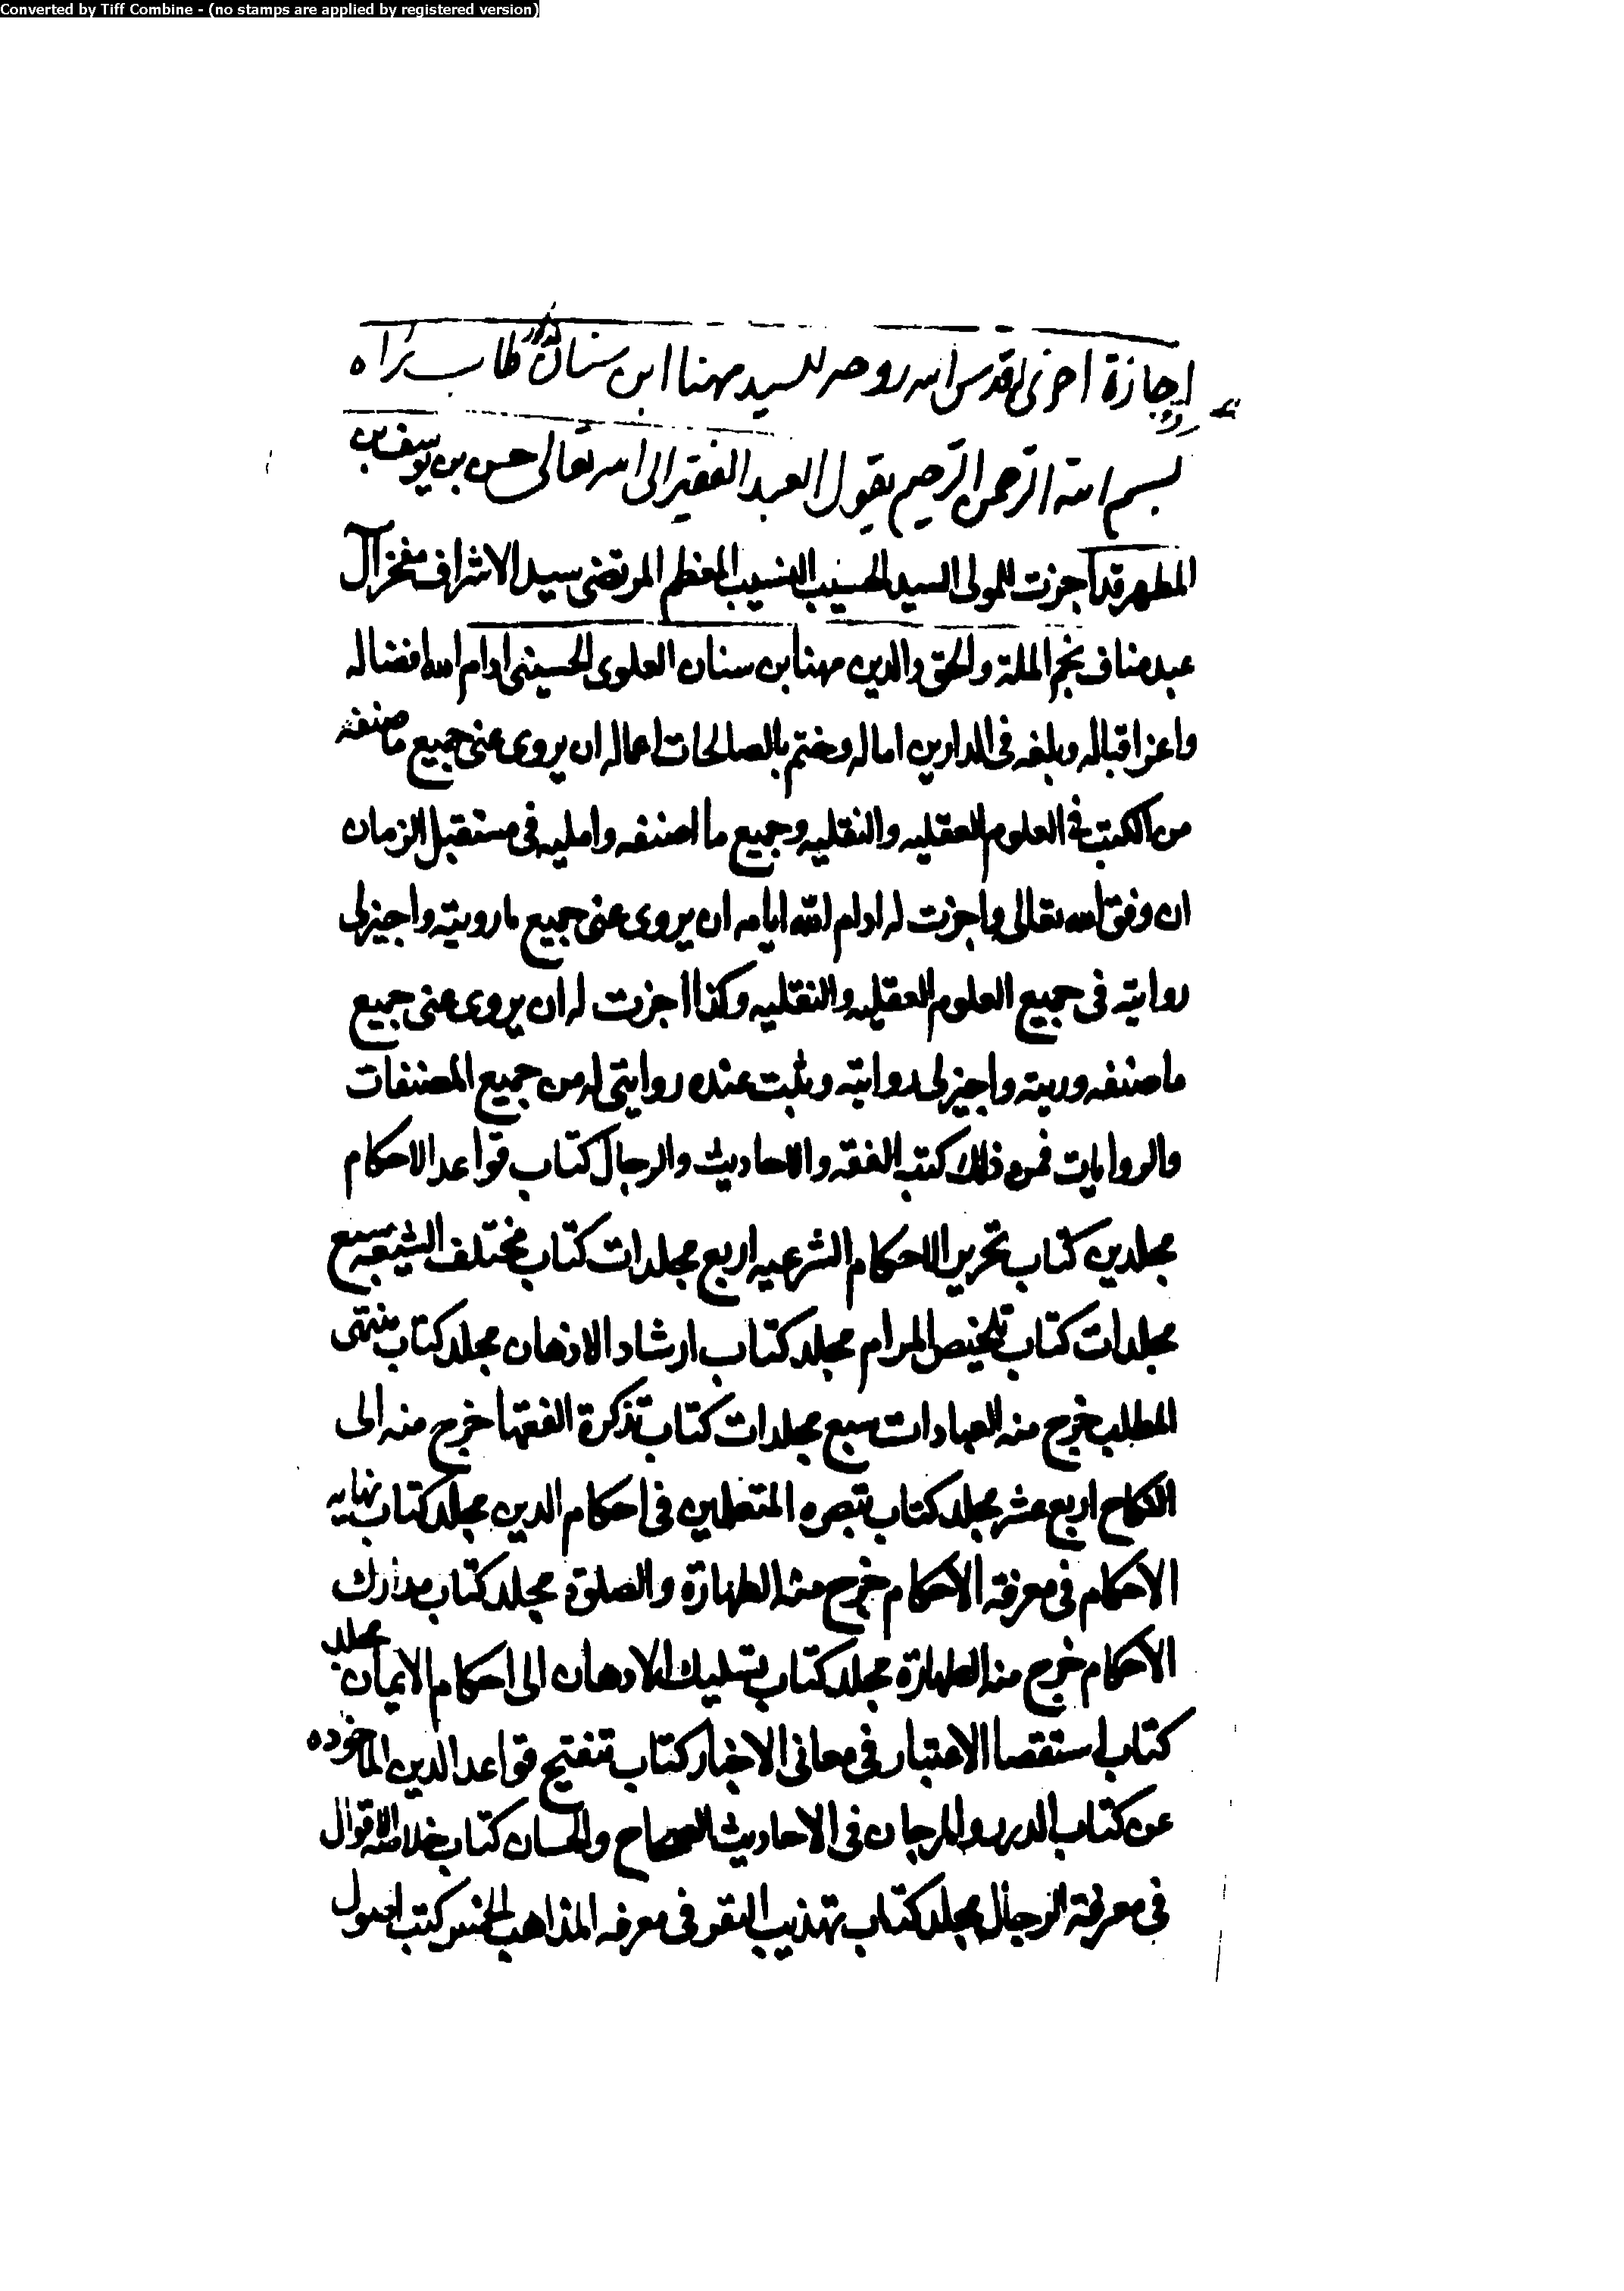 Converted by Tiff Combine - (no stamps are applied by registered version)
اجازة اخرى له قدس الله روحه للسيد مهنا ابن سنان طاب ثراه
بسم الله الرحمن الرحيم يقول العبد الفقير الى الله تعالى حسن بن يوسف بن
المطهر قد اجزت للمولى السيد الحسيب النسيب المعظم المرتضى سيد الاشراف مفخر آل
عبد مناف نجم الملة والحق والدين مهنا بن سنان العلوى الحسينى ادام الله افضاله
واعز اقباله وبلغه فى الدارين اماله وختم بالصالحات اعماله ان يروى عنى جميع ما صنفته
من الكتب فى العلوم العقليه والنقليه وجميع ما اصنفه وامليه فى مستقبل الزمان
ان وفق الله تعالى واجزت له ادام الله ايامه ان يروى عنى جميع ما رويته واجيز لى
روايته فى جميع العلوم العقليه والنقليه وكذا اجزت له ان يروى عنى جميع
ما صنفه ورويته واجيز لى روايته وثبت عنده روايتى له من جميع المصنفات
والروايات فمن ذلك كتب الفقه والاحاديث والرجال كتاب قواعد الاحكام
مجلدين كتاب تحرير الاحكام الشرعيه اربع مجلدات كتاب مختلف الشيعه سبع
مجلدات كتاب تلخيص المرام مجلد كتاب ارشاد الاذهان مجلد كتاب منتهى
المطلب خرج منه العبادات سبع مجلدات كتاب تذكرة الفقها خرج منه الى
النكاح اربع عشر مجلد كتاب تبصره المتعلمين فى احكام الدين مجلد كتاب نهايه
الاحكام فى معرفة الاحكام خرج منه الطهارة والصلوة مجلد كتاب مدارك
الاحكام خرج منه الطهارة مجلد كتاب تسليك الاذهان الى احكام الايمان مجلد
كتاب استقصا الاعتبار فى معانى الاخبار كتاب تنقيح قواعد الدين الماخوده
عن كتاب الدرر والمرجان فى الاحاديث الصحاح والحسان كتاب خلاصه الاقوال
فى معرفة الرجال مجلد كتاب تهذيب النفس فى معرفه المذاهب الخمس كتب اصول